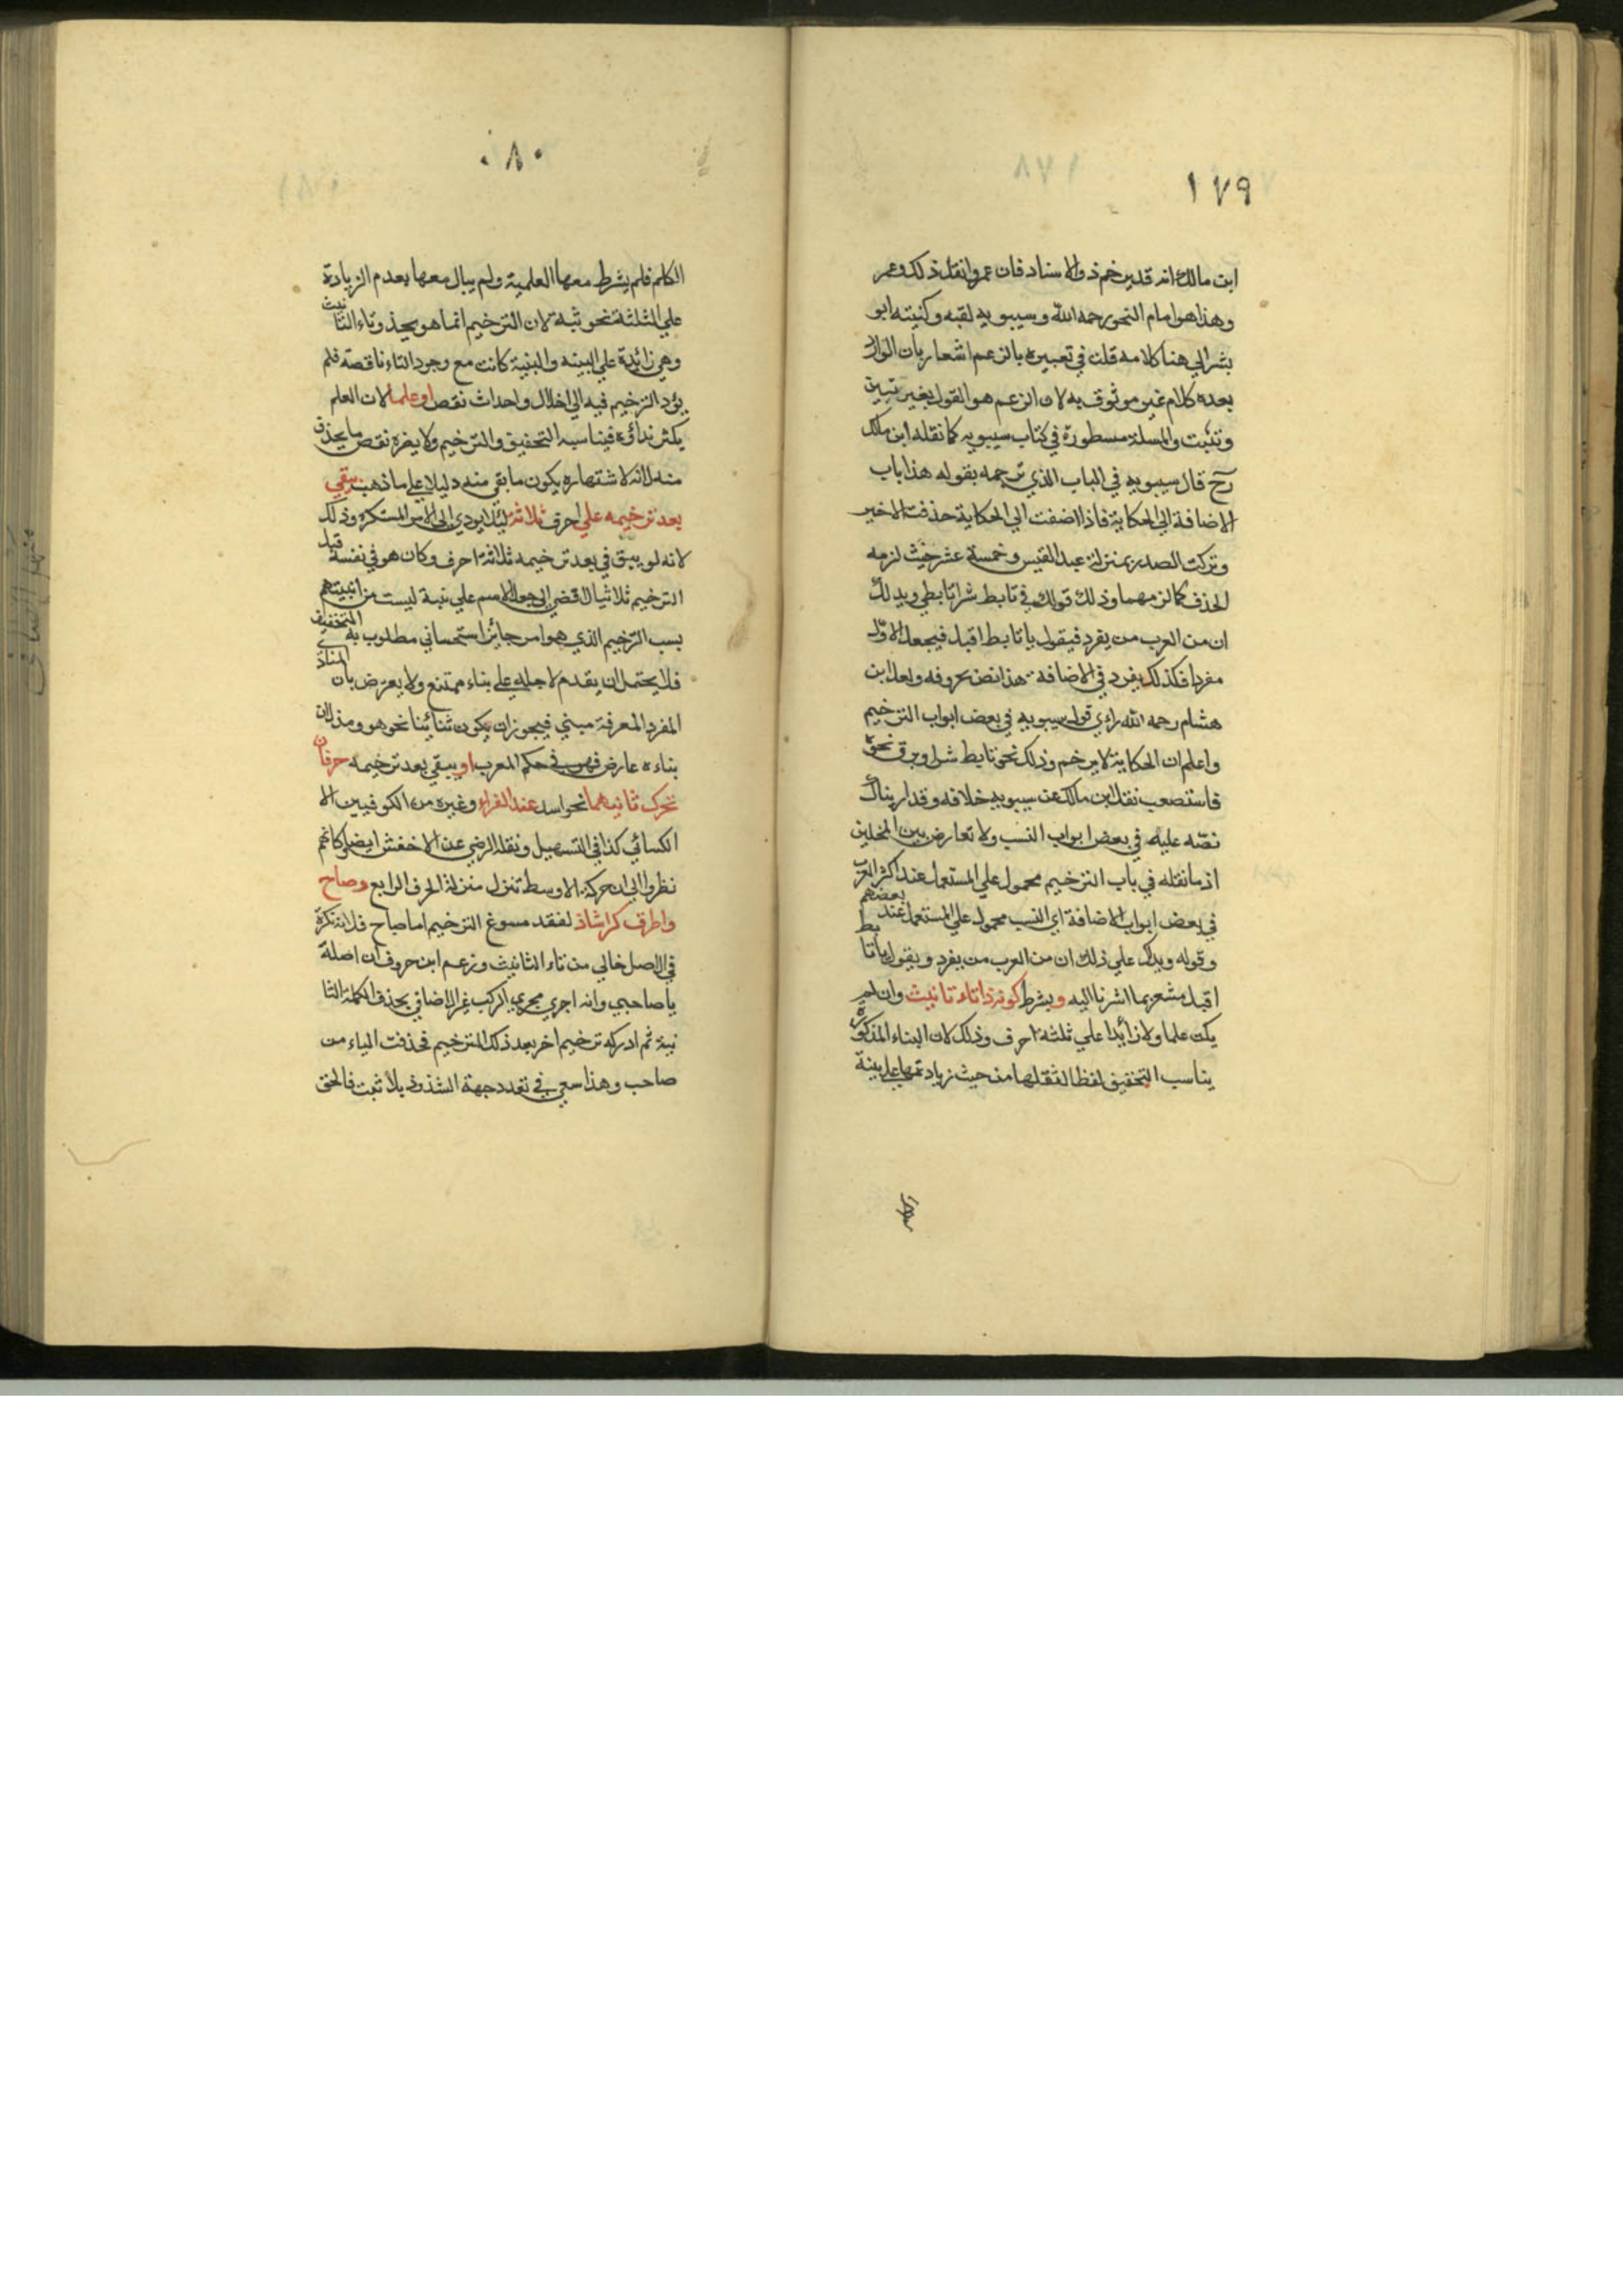 ١٧٩
ابن مالك انه قد يرخم ذو الاسناد فان عمروا نقل ذلك وعمر
وهذا هو امام النحو رحمه الله وسيبويه لقبه وكنيته ابو
بشر الي هنا كلامه قلت في تعبيره بالزعم اشعار بان الوارد
بعده كلام غير موثوق به لان الزعم هو القول بغير تبين
وتثبت والمسلة مسطورة في كتاب سيبويه كما نقله ابن ملك
رح قال سيبويه في الباب الذي ترجمه بقوله هذا باب
الاضافة الي الحكاية فاذا اضفت الي الحكاية حذفت الاخير
وتركت الصدر بمنزلة عبد القيس وخمسة عشر حيث لزمه
الحذف كما لزمهما وذلك قولك في تابط شرا تابطي ويدلك
ان من العرب من يفرد فيقول يا تابط اقبل فيجعل الاول
مفردا فكذلك يفرد في الاضافة هذا نص بحروفه ولعل ابن
هشام رحمه الله راي قول سيبويه في بعض ابواب الترخيم
واعلم ان الحكاية لا يرخم وذلك نحو تابط شرا وبرق نحره
فاستصعب نقل ابن مالك عن سيبويه خلافه وقد اريناك
نصه عليه في بعض ابواب النسب ولا تعارض بين المحلين
اذ ما نقله في باب الترخيم محمول علي المستعمل عند اكثر العرب
في بعض ابواب الاضافة اي النسب محمول علي المستعمل عند بعضهم
وقوله ويدلك علي ذلك ان من العرب من يفرد ويقول يا تابط
اقبل مشعر بما اشرنا اليه وبشرط كونه ذا تاء تانيث وان لم
يكن علما ولا زائدا علي ثلثة احرف وذلك لان البناء المذكورة
يناسب التخفيف لفظا لثقلها من حيث زيادتها علي بينة
١٨٠
الكلم فلم يشرط معها العلمية ولم يبال معها بعدم الزيادة
علي الثلثة نحو ثبة لان الترخيم انما هو بحذف تاء التانيث
وهي زائدة علي البينه والبنية كانت مع وجود التاء ناقصة فلم
يؤد الترخيم فيه الي اخلال واحداث نقص او علما لان العلم
يكثر نداؤه فيناسبه التخفيف والترخيم ولا يضره نقص ما يحذف
منه لانه لاشتهاره يكون ما بقي منه دليلا علي ما ذهب يبقي
بعد ترخيمه علي احرف ثلاثة ليلا يودي الي الامر المستكره وذلك
لانه لو يبق في بعد ترخيمه ثلاثة احرف وكان هو في نفسه قبل
الترخيم ثلاثيا لاقضي الي جعل الاسم علي نبة ليست من ابنيتهم
بسب الترخيم الذي هو امر جائز استحساني مطلوب به التخفيف
فلا يحتمل ان يقدم لاجله علي بناء ممتنع ولا يعترض بان المنادي
المفرد المعرفة مبني فيجوز ان يكون ثنائينا نحو هو ومذ لان
بناءه عارض فهو في حكم المعرب او يبقي بعد ترخيمه حرفان
تحرك ثانيهما نحو اسد عند الفراء وغيره من الكوفيين الا
الكسائي كذا في التسهيل ونقله الرضي عن الاخفش ايضا وكانهم
نظروا الي ان حركة الاوسط تنزل منزلة الحرف الرابع وصاح
واطرق كرا شاذ لفقد مسوغ الترخيم اما صاح فلانه نكرة
في الاصل خالي من تاء الثانيث وزعم ابن حروف ان اصله
يا صاحبي وانه اجري مجري المركب غير الاضافي بحذف الكلمة الثا
نية ثم ادركه ترخيم اخر بعد ذلك الترخيم فحذفت الباء من
صاحب وهذا سعي في تعدد جهة الشذوذ بلا ثبت فالحق